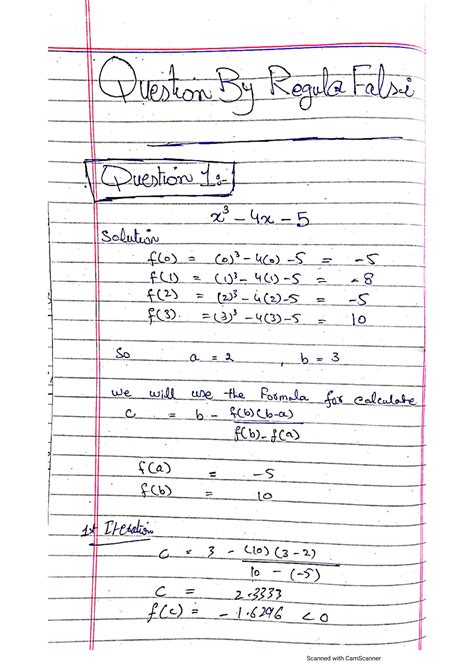 Question By Regula Falsi
Question 1:-
x³ - 4x - 5
Solution
f(0) = (0)³ - 4(0) - 5 = -5
f(1) = (1)³ - 4(1) - 5 = -8
f(2) = (2)³ - 4(2) - 5 = -5
f(3) = (3)³ - 4(3) - 5 = 10
So a = 2 , b = 3
we will use the Formula for calculate
c = b - f(b)(b-a)
f(b) - f(a)
f(a) = -5
f(b) = 10
1st Iteration
c = 3 - (10)(3-2)
10 - (-5)
c = 2.3333
f(c) = -1.6296 < 0
Scanned with CamScanner